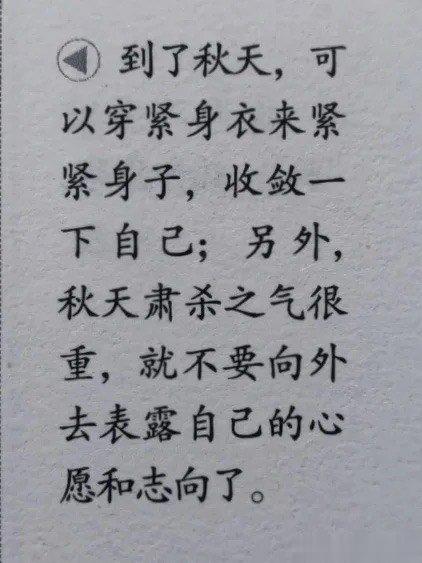 到了秋天，可
以穿紧身衣来紧
紧身子，收敛一
下自己；另外，
秋天肃杀之气很
重，就不要向外
去表露自己的心
愿和志向了。